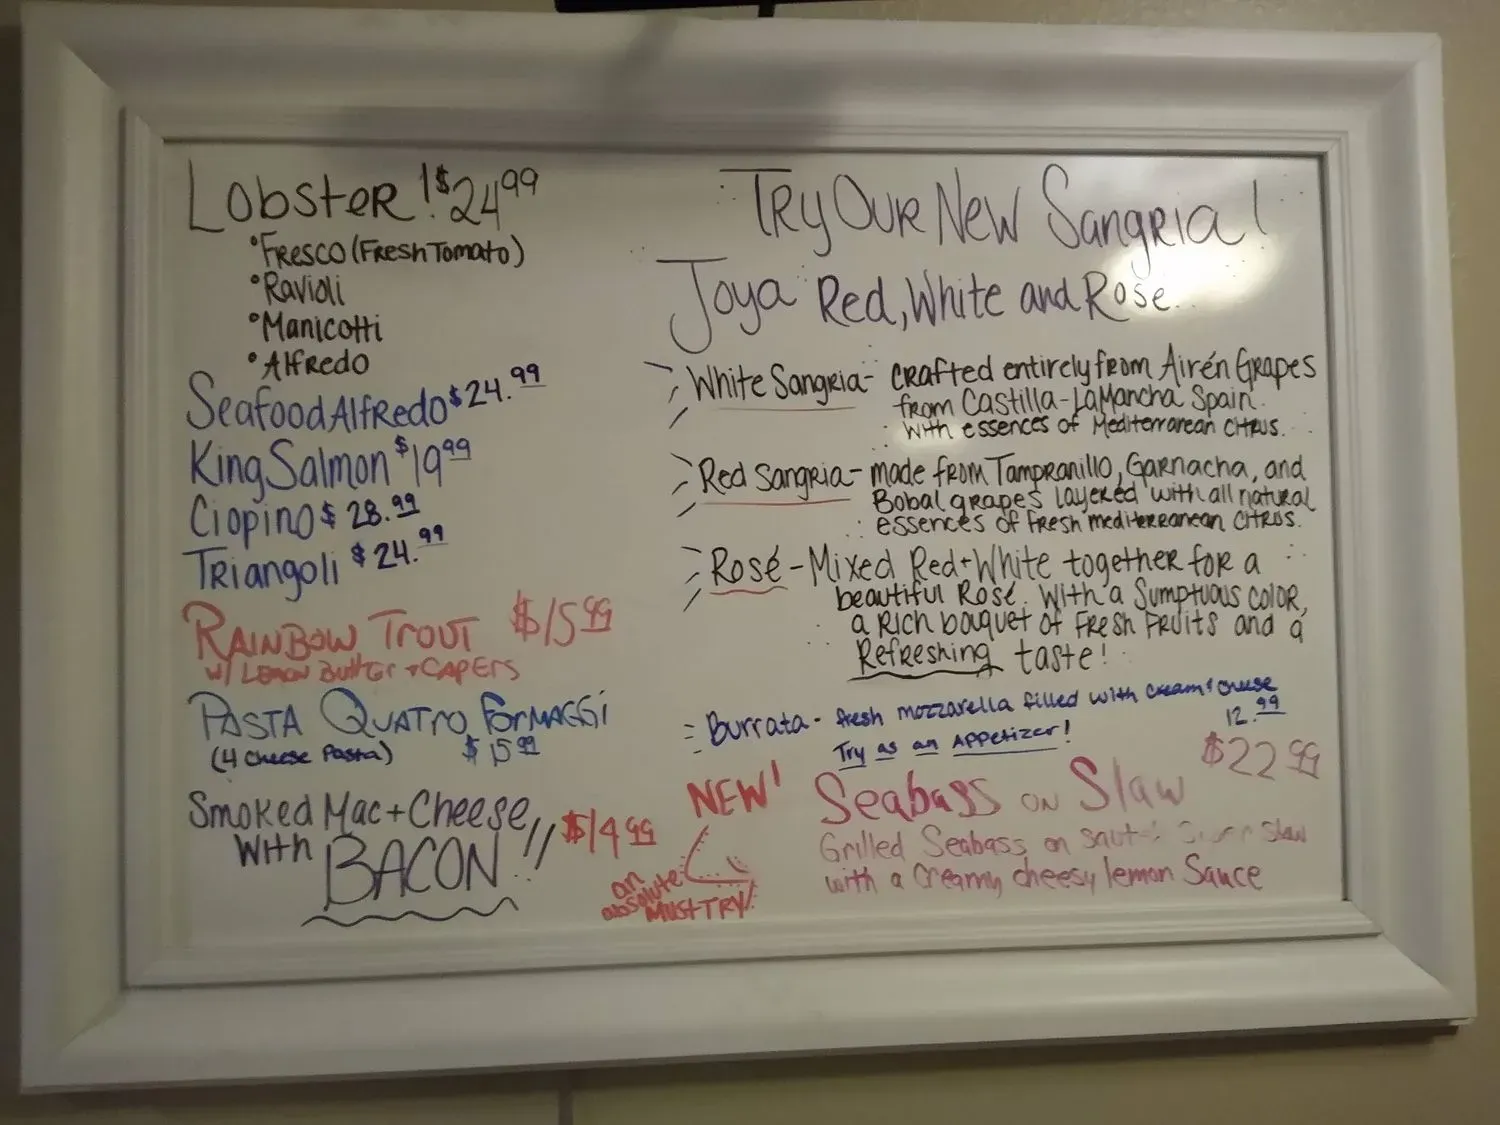 LobsteR! $24.99
• Fresco (Fresh Tomato)
• Ravioli
• Manicotti
• Alfredo
Seafood Alfredo $24.99
King Salmon $19.99
Ciopino $28.99
Triangoli $24.99
RAINBOW TROUT $15.99
w/ LEMON BUTTER + CAPERS
PASTA QUATRO FORMAGGI
(4 cheese Pasta) $15.99
Smoked Mac + Cheese
with BACON!! $14.99
Try Our New Sangria!
Joya Red, White and Rose
White Sangria - crafted entirely from Airén Grapes
from Castilla-LaMancha Spain.
with essences of Mediterranean citrus.
Red Sangria - made from Tampranillo, Garnacha, and
Bobal grapes layered with all natural
essences of fresh mediterranean citrus.
Rosé - Mixed Red + White together for a
beautiful Rosé. With a Sumptuous color,
a rich bouquet of fresh fruits and a
Refreshing taste!
Burrata - fresh mozzarella filled with cream + cheese
12.99
Try as an Appetizer!
NEW! Seabass on Slaw $22.99
Grilled Seabass on Slaw
with a creamy cheesy lemon Sauce
an
absolute
MUST TRY!